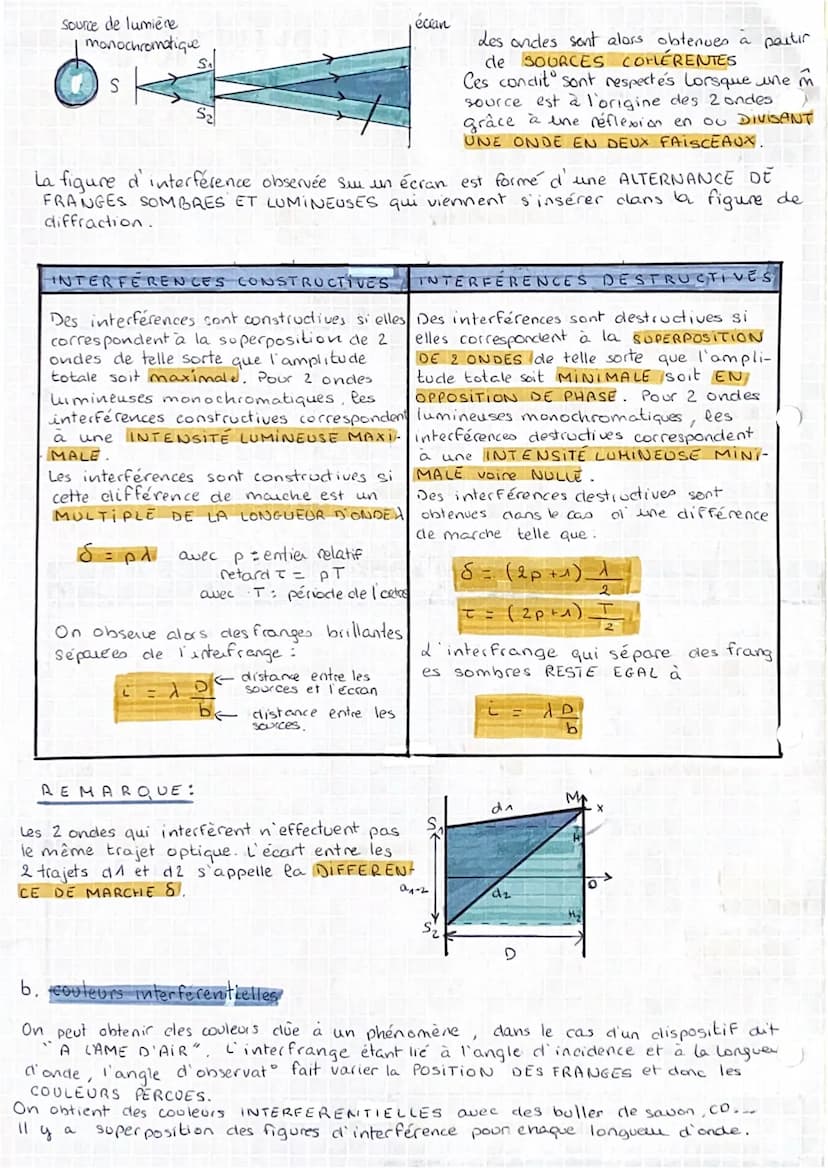 source de lumière
monochromatique
écran
S
S1
S2
des ondes sont alors obtenues à partir
de SOURCES COHÉRENTES
Ces condit° sont respectés lorsque une m̂
source est à l'origine des 2 ondes
grâce à une réflexion en ou DIVISANT
UNE ONDE EN DEUX FAISCEAUX.
La figure d'interférence observée sur un écran est formé d'une ALTERNANCE DE
FRANGES SOMBRES ET LUMINEUSES qui viennent s'insérer dans la figure de
diffraction.
INTERFÉRENCES CONSTRUCTIVES
Des interférences sont constructives si elles
correspondent à la superposition de 2
ondes de telle sorte que l'amplitude
totale soit maximale. Pour 2 ondes
lumineuses monochromatiques, les
interférences constructives correspondent
à une INTENSITÉ LUMINEUSE MAXI-
MALE.
Les interférences sont constructives si
cette différence de marche est un
MULTIPLE DE LA LONGUEUR D'ONDE λ
δ = pλ avec p = entier relatif
retard τ = pT
avec T : période de l'
On observe alors des franges brillantes
séparées de l'interfrange :
i = λ D/b
distance entre les
sources et l'écran
distance entre les
sources.
INTERFÉRENCES DESTRUCTIVES
Des interférences sont destructives si
elles correspondent à la SUPERPOSITION
DE 2 ONDES de telle sorte que l'ampli-
tude totale soit MINIMALE soit EN
OPPOSITION DE PHASE. Pour 2 ondes
lumineuses monochromatiques, les
interférences destructives correspondent
à une INTENSITÉ LUMINEUSE MINI-
MALE voire NULLE.
Des interférences destructives sont
obtenues dans le cas d'une différence
de marche telle que :
δ = (2p+1) λ/2
τ = (2p+1) T/2
L'interfrange qui sépare des frang
es sombres RESTE EGAL à
i = λD/b
REMARQUE:
Les 2 ondes qui interfèrent n'effectuent pas
le même trajet optique. L'écart entre les
2 trajets d1 et d2 s'appelle la DIFFEREN-
CE DE MARCHE δ.
d1
M
x
S1
H
a1-2
d2
O
H2
S2
D
b. couleurs interférentielles
On peut obtenir des couleurs dûe à un phénomène, dans le cas d'un dispositif dit
"A L'AME D'AIR". L'interfrange étant lié à l'angle d'incidence et à la longueur
d'onde, l'angle d'observat° fait varier la POSITION DES FRANGES et donc les
COULEURS PERCUES.
On obtient des couleurs INTERFERENTIELLES avec des buller de savon, CD...
Il y a superposition des figures d'interférence pour chaque longueur d'onde.